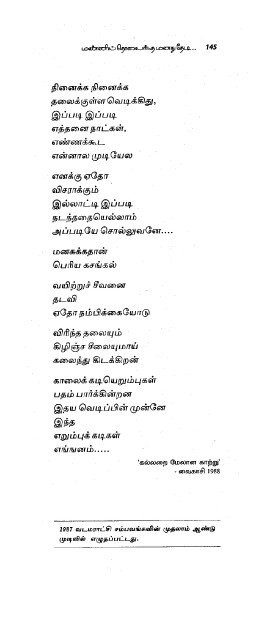 மண்ணிற்தொலைந்த மனது தேடி... 145
நினைக்க நினைக்க
தலைக்குள்ள வெடிக்கிது,
இப்படி இப்படி
எத்தனை நாட்கள்,
எண்ணக்கூட
என்னால முடியேல
எனக்கு ஏதோ
விசராக்கும்
இல்லாட்டி இப்படி
நடந்ததையெல்லாம்
அப்படியே சொல்லுவனே....
மனசுக்கதான்
பெரிய கசங்கல்
வயிற்றுச் சீவனை
தடவி
ஏதோ நம்பிக்கையோடு
விரிந்த தலையும்
கிழிஞ்ச சீலையுமாய்
கலைந்து கிடக்கிறன்
காலைக் கடியெறும்புகள்
பதம் பார்க்கின்றன
இதய வெடிப்பின் முன்னே
இந்த
எறும்புக் கடிகள்
எங்ஙனம்.....
'கல்லறை மேலான காற்று'
- வைகாசி 1988
1987 வடமராட்சி சம்பவங்களின் முதலாம் ஆண்டு
முடிவில் எழுதப்பட்டது.